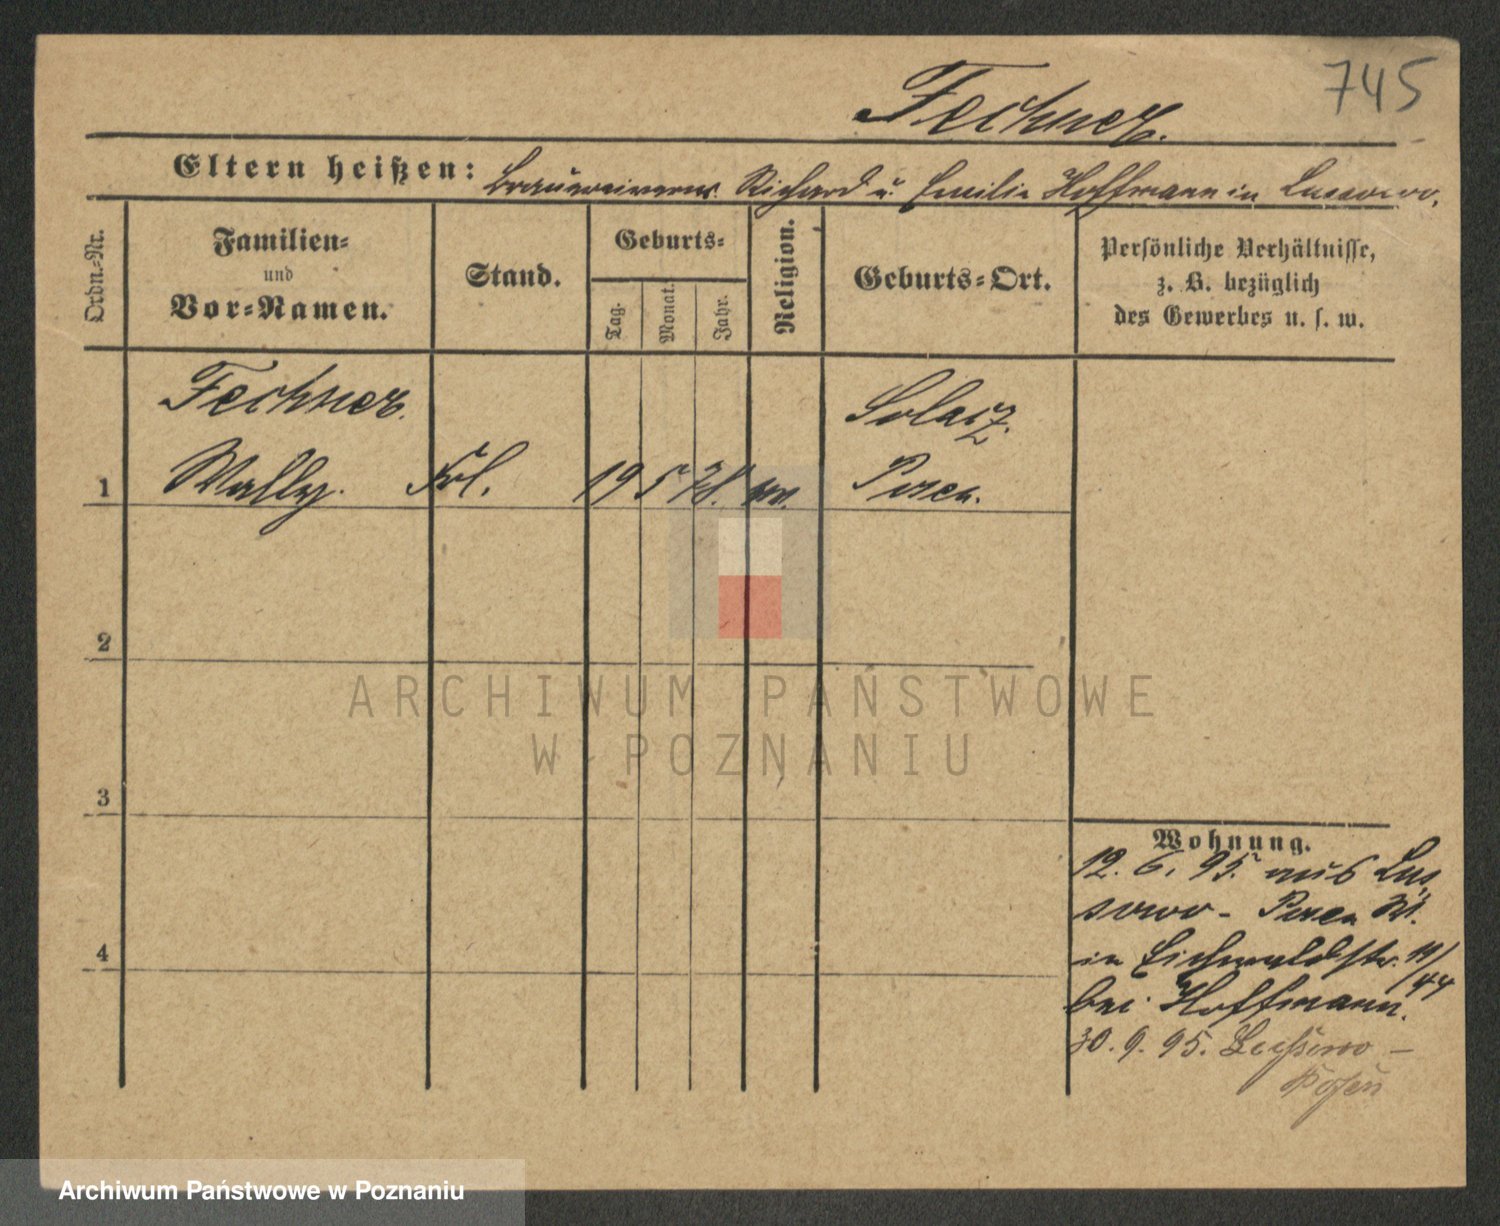 745
Fechner.
Eltern heißen: Brauereiverw. Richard u. Emilie Hoffmann in Lussowo.
Ordn.-Nr.
Familien-
und
Vor-Namen.
Stand.
Geburts-
Tag.
Monat.
Jahr.
Religion.
Geburts-Ort.
Persönliche Verhältnisse,
z. B. bezüglich
des Gewerbes u. s. w.
Fechner.
Solacz.
1 Wally. Frl. 19 5 78. ev. Posen.
2
ARCHIWUM PAŃSTWOWE
W POZNANIU
3
Wohnung.
12. 6. 95. aus Lus
sowo - Posen W.
4
in Eichwaldstr. 11/44
bei Hoffmann.
30. 9. 95. Lussowo -
Posen
Archiwum Państwowe w Poznaniu